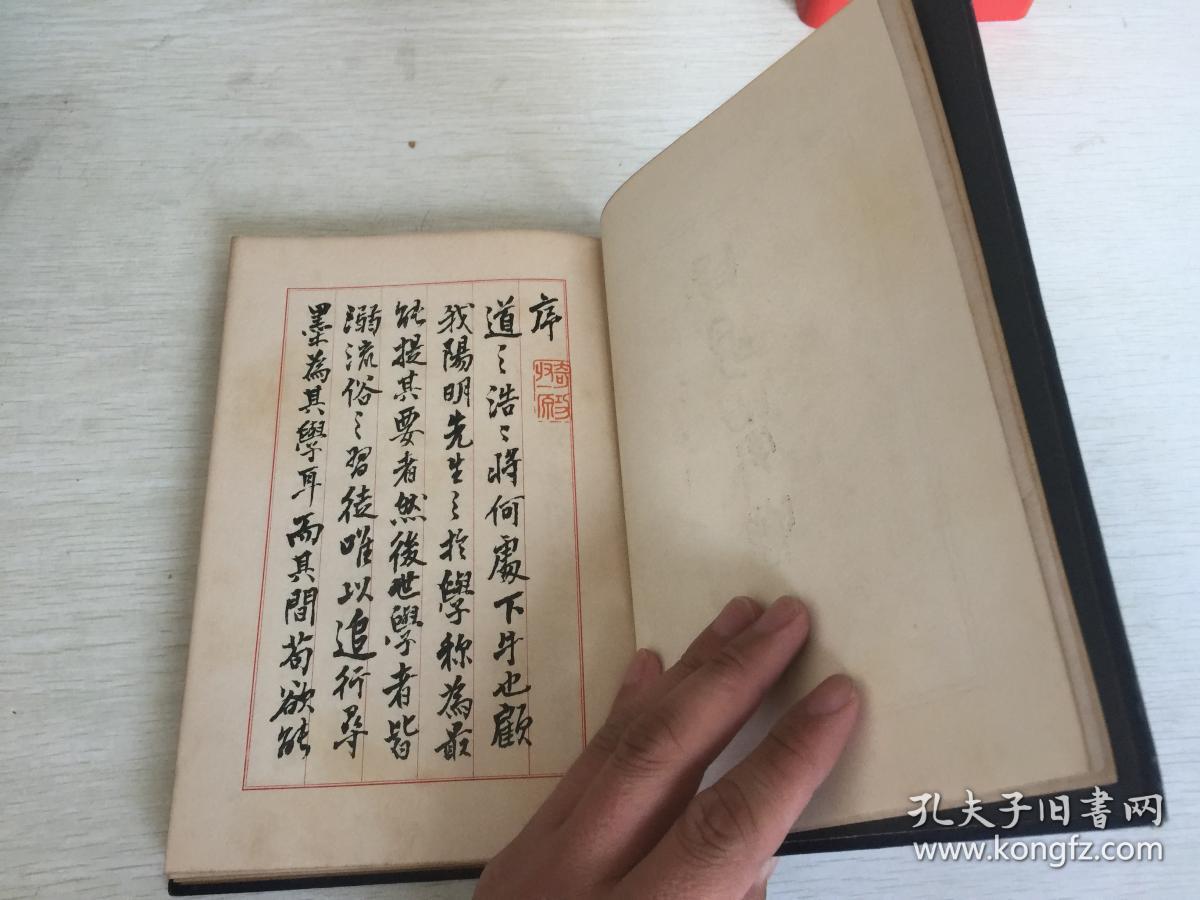 序
道之浩〻將何處下手也顧
我陽明先生之於學称為最
能提其要者然後世學者皆
溺流俗之習徒唯以追行尋
墨為其學耳而其間苟欲能
孔夫子旧書网
www.kongfz.com